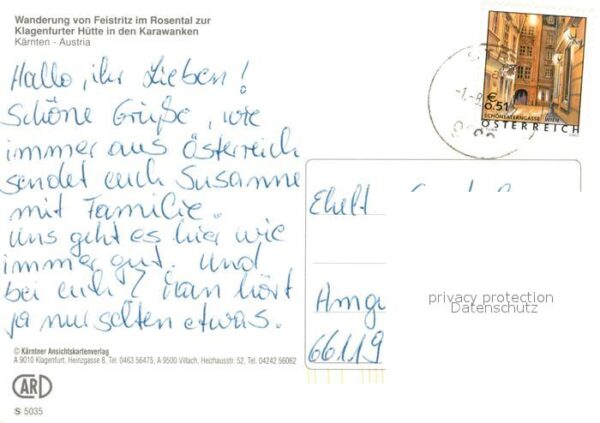 Wanderung von Feistritz im Rosental zur
Klagenfurter Hütte in den Karawanken
Kärnten - Austria
Hallo, ihr Lieben!
Schöne Grüße, wie
immer aus Österreich
sendet euch Susanne
mit Familie.
Uns geht es hier wie
immer gut. Und
bei euch? Man hört
ja nur selten etwas.
© Kärntner Ansichtskartenverlag
A 9010 Klagenfurt, Heinzgasse 8, Tel. 0463 56475, A 9500 Villach, Heizhausstr. 52, Tel. 04242 56062
CARD
S 5035
€
0.51
SCHÖNLATERNGASSE WIEN
ÖSTERREICH
66119
privacy protection
Datenschutz